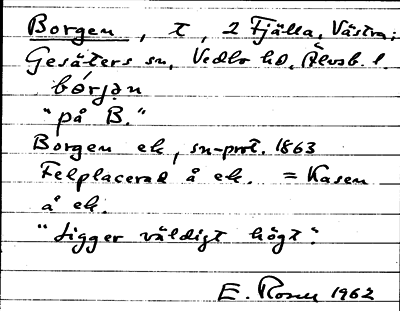 Borgen, t, 2 Fjälla, Västra;
Gesäters sn, Vedbo hd, Älvsb. l.
bórjən
"på B."
Borgen ek, sn-prot. 1863
Felplacerad å ek. = Kasen
å ek.
"Ligger väldigt högt".
E. Rosen 1962